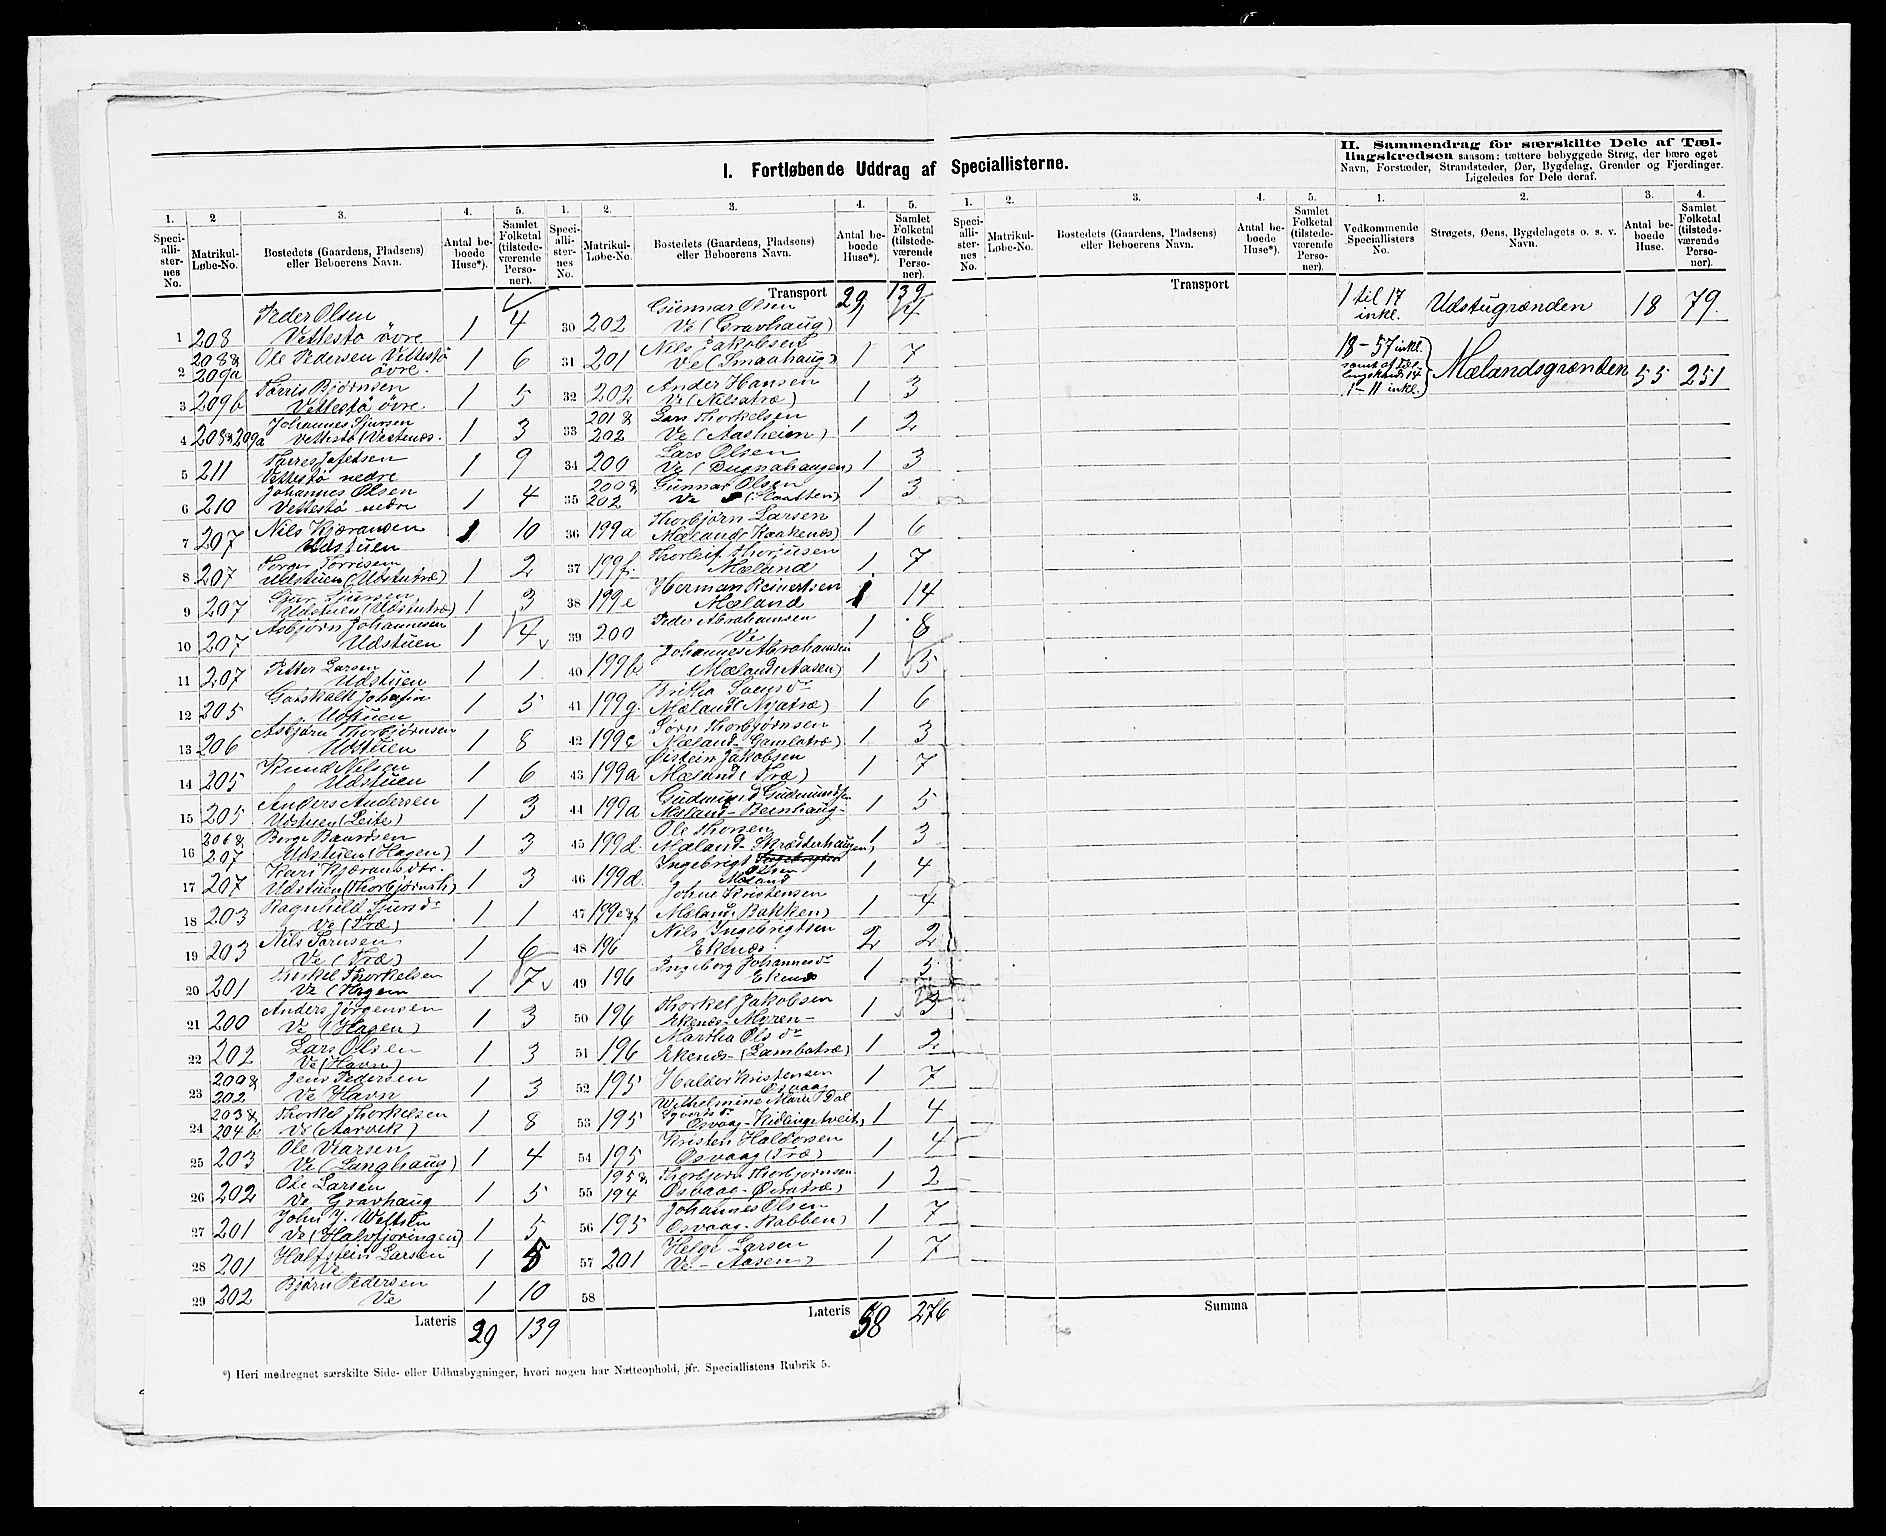 I. Fortløbende Uddrag af Speciallisterne.
II. Sammendrag for særskilte Dele af Tællingskredsen saasom: tættere bebyggede Strøg, der bære eget
Navn, Forstæder, Strandsteder, Øer, Bygdelag, Grender og Fjerdinger.
Ligeledes for Dele deraf.
1. 2 3. 4. 5. 1. 2. 3. 4. 5. 1. 2. 3. 4. 5. 1. 2. 3. 4.
Speciallisternes No. Matrikul-Løbe-No. Bostedets (Gaardens, Pladsens) eller Beboerens Navn. Antal beboede Huse*). Samlet Folketal (tilstedeværende Personer).
Vedkommende Speciallisters No. Strøgets, Øens, Bygdelagets o. s. v. Navn. Antal beboede Huse. Samlet Folketal (tilstedeværende Personer).
1 208 Peder Olsen Vettestø övre 1 4
2 208 & 209a Ole Pedersen Vettestö övre. 1 6
3 209b Torris Bjørnsen Vettestö övre 1 5
4 208 & 209a Johannes Sjursen Vettestö (Vestenes. 1 3
5 211 Torres Jafetsen Vettestö nedre 1 9
6 210 Johannes Olsen Vettestö nedre 1 4
7 207 Nils Kjæransen Udstuen 1 10
8 207 Torger Torrisen Udstuen (Udstutræ) 1 2
9 207 Sjur Sjursen Udstuen (Udstutræ) 1 3
10 207 Asbjørn Johannesen Udstuen 1 4
11 207 Petter Larsen Udstuen 1 1
12 205 Udstuen 1 5
13 206 Asbjørn Thorbjörnsen Udstuen 1 8
14 205 Knud Nilsen Udstuen 1 6
15 205 Anders Andersen Udstuen (Leite) 1 3
16 206 & 207 Berge Baardsen Udstuen (Hagen) 1 3
17 207 Kari Kjæransdtr. Udstuen 1 3
18 203 Ragnhild Sjursdr Ve (Træ) 1 1
19 203 Nils Ve (Træ) 1 6
20 201 Thorkel Thorkelsen Ve (Hagen 1 7
21 200 Anders Jörgensen Ve (Hagen) 1 3
22 202 Lars Olsen Ve (Havn) 1 3
23 200 & 202 Jens Pedersen Ve Havn 1 3
24 203 & 204b Thorkel Thorkelsen Ve (Aarvik) 1 8
25 203 Ole Ve (Langhaug) 1 4
26 202 Ole Larsen Ve Gravhaug 1 5
27 201 John J. Ve 1 5
28 201 Halfstein Larsen Ve 1 5
29 202 Bjørn Pedersen Ve 1 10
Lateris 29 139
Transport 29 139
30 202 Gunnar Olsen Ve (Gravhaug) 1 4
31 201 Nils Jakobsen Ve (Smaahaug) 1 7
32 202 Ander Hansen Ve (Nilsatræ) 1 3
33 201 & 202 Lars Thorkelsen Ve (Aasheien) 1 2
34 200 Lars Olsen Ve (Dugnahaugen) 1 3
35 200 & 202 Gunnar Olsen Ve (Slaatten) 1 3
36 199a Thorbjørn Larsen Mæland (Kaakenes) 1 6
37 199f. Thorleif Mæland 1 7
38 199e Herman Reinertsen Mæland 1 14
39 200 Peder Abrahamsen Ve 1 8
40 199b. Johannes Abrahamsen Mæland (Aasen) 1 5
41 199g. Britha Mæland (Nyatræ) 1 6
42 199c Sörn Thorbjørnsen Mæland - Gamlatræ) 1 3
43 199a Öistein Jakobsen Mæland (Træ) 1 7
44 199a Gudmund Gudmundsen Mæland - Beinhaug - 1 5
45 199d. Ole Thorsen Mæland - Skrædderhaugen) 1 3
46 199d. Ingebrigt Olsen Mæland 1 4
47 199e & f Johne Kristensen Mæland (Bakken) 1 4
48 196 Nils Ingebrigtsen Ekenæs. 2 2
49 196 Ingeborg Johannesdr Ekenæs 1 5
50 196 Thorkel Jakobsen Ekenæs - Myren - 1 3
51 196 Martha Olsdr Ekenæs - (Lambatræ) 1 2
52 195 Haldor Kristensen Osvaag 1 7
53 195 Wilhelmine Marie Dal Osvaag - Kidlingstveit) 1 4
54 195 Kristen Haldorsen Osvaag (Træ) 1 4
55 195 & 194 Thorbjørn Thorbjørnsen Osvaag - Øvratræ) 1 2
56 195 Johannes Olsen Osvaag - Rabben) 1 7
57 201 Helge Larsen Ve - Aasen) 1 7
58
Lateris 58 276
Transport
Summa
1 til 17 inkl. Udstugrænden 18 79.
18 - 57 inkl. samt af Tællingskreds 14 1 - 11 inkl. Mælandsgrænden 55 251
*) Heri medregnet særskilte Side- eller Udhusbygninger, hvori nogen har Natteophold, jfr. Speciallistens Rubrik 5.